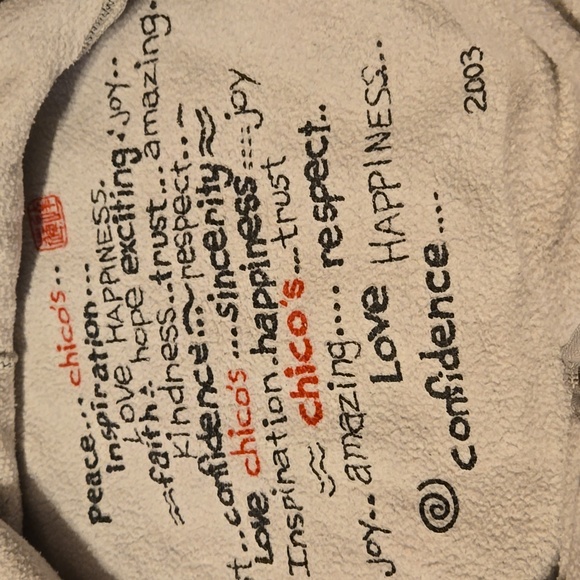 peace... chico's...
inspiration...
Love HAPPINESS. joy..
hope exciting
faith trust... amazing.
Kindness.. respect...
confidence... sincerity
t.. chico's ....joy
Love happiness
Inspiration. ...trust
chico's respect..
joy.. amazing....
Love HAPPINESS...
confidence....
2003